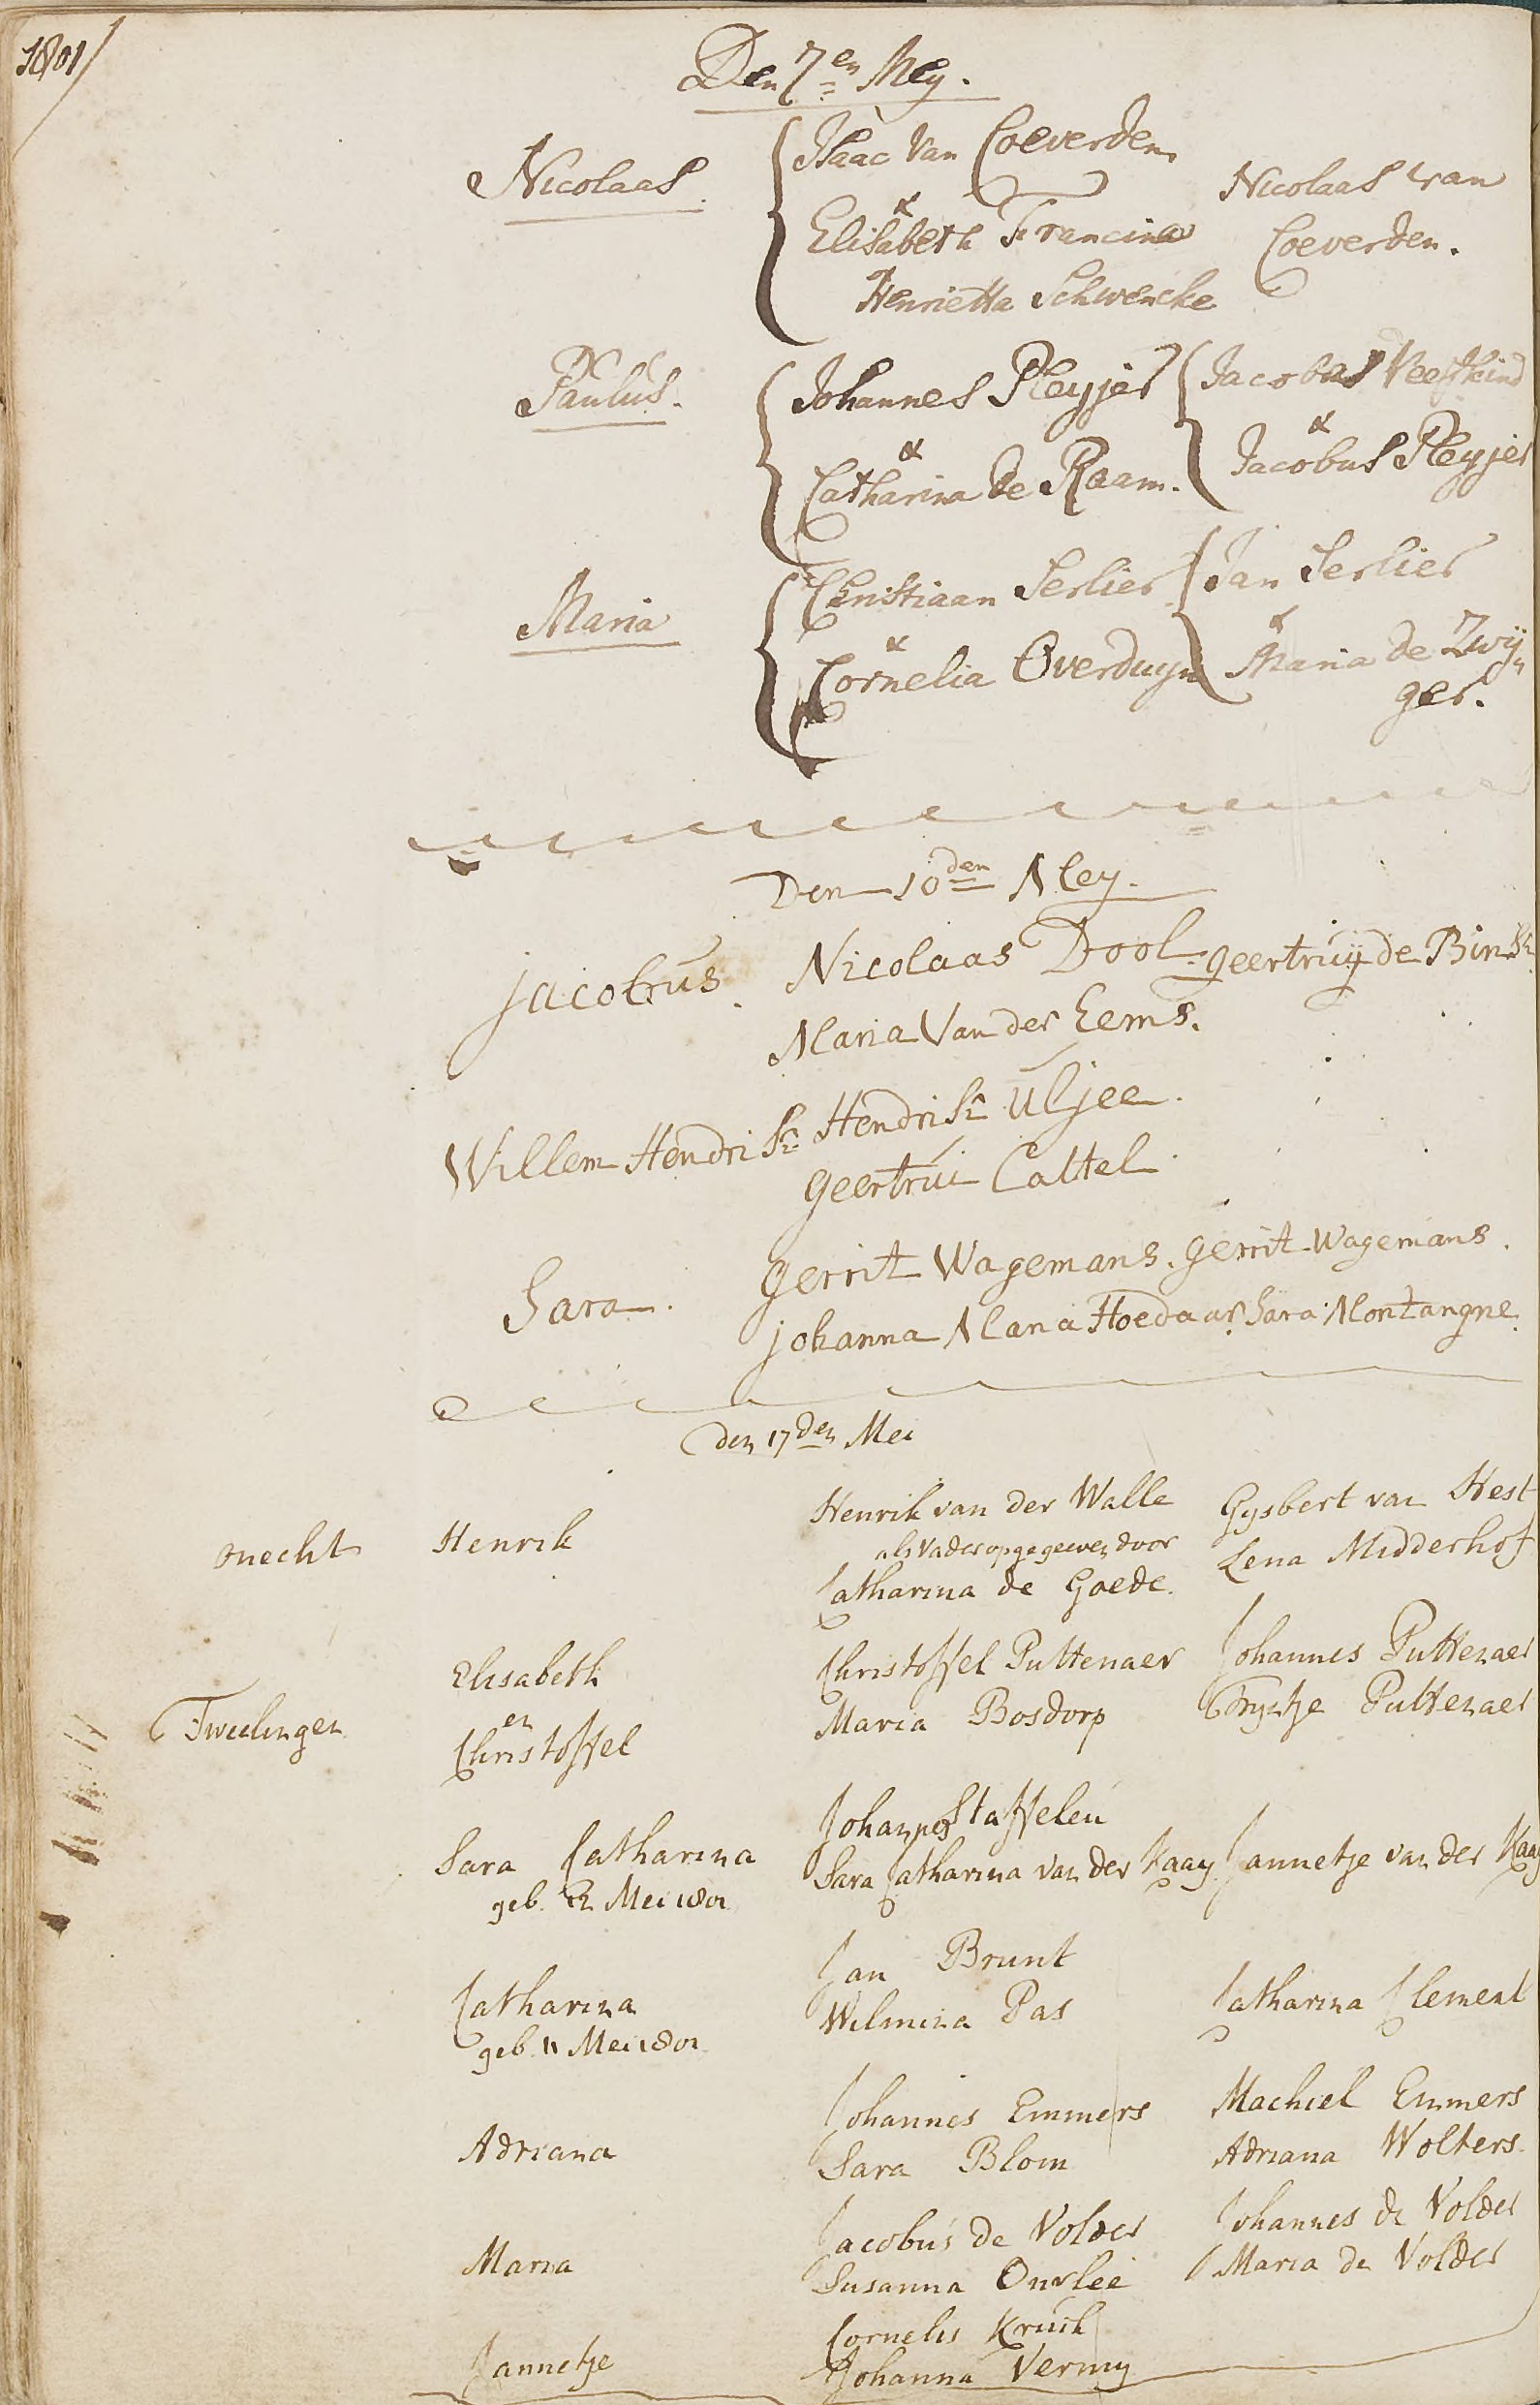 1801/
Den 7en Mey.
Nicolaas.
Isaac Van Coeverden
&
Elisabeth Francina
Henrietta Schwencke
Nicolaas van
Coeverden.
Paulus.
Johannes Pleyjer
&
Catharina de Raam.
Jacobus Veefkind
&
Jacobus Pleyjer
Maria
Christiaan Serlier
&
Cornelia Overduyn
Jan Serlier
&
Maria de Zwij„
ger.
Den 10den Mey.
Jacobus.
Nicolaas Dool.
Maria Van der Eems.
geertruij de Bink
Willem Hendrik
Hendrik Uljee.
geertrui Cattel.
Sara.
gerrit Wagemans.
johanna Maria Hoedaar.
gerrit Wagemans.
Sara Montangne.
den 17den Mei
onecht
Henrik
Henrik van der Walle
als Vader opgegeeven door
Catharina de Goede.
Gysbert van Hest
Lena Midderhof
Tweelingen
Elisabeth
en
Christoffel
Christoffel Puttenaer
Maria Bosdorp
Johannes Puttenaer
Tryntje Puttenaer
Sara Catharina
geb. 2 Mei 1801
Johannes Staffeleu
Sara Catharina van der Kaay
Jannetje van der Kaay
Catharina
geb. 11 Mei 1801
Jan Brunt
Wilmina Pas
Catharina Clement
Adriana
Johannes Emmers
Sara Blom
Machiel Emmers
Adriana Wolters.
Maria
Jacobus de Volder
Susanna Onvlee
Johannes de Volder
Maria de Volder
Jannetje
Cornelis Kruik
Johanna Vermy